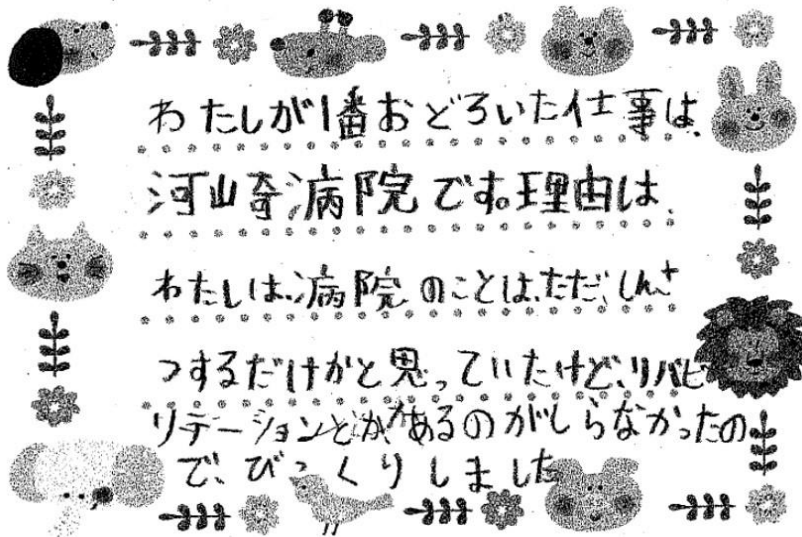 わたしが1番おどろいた仕事は、
河山奇病院です。理由は、
わたしは、病院のことは、ただ、しんさ
つするだけかと思っていたけど、リハビ
リテーションとかがあるのがしらなかったの
で、びっくりしました